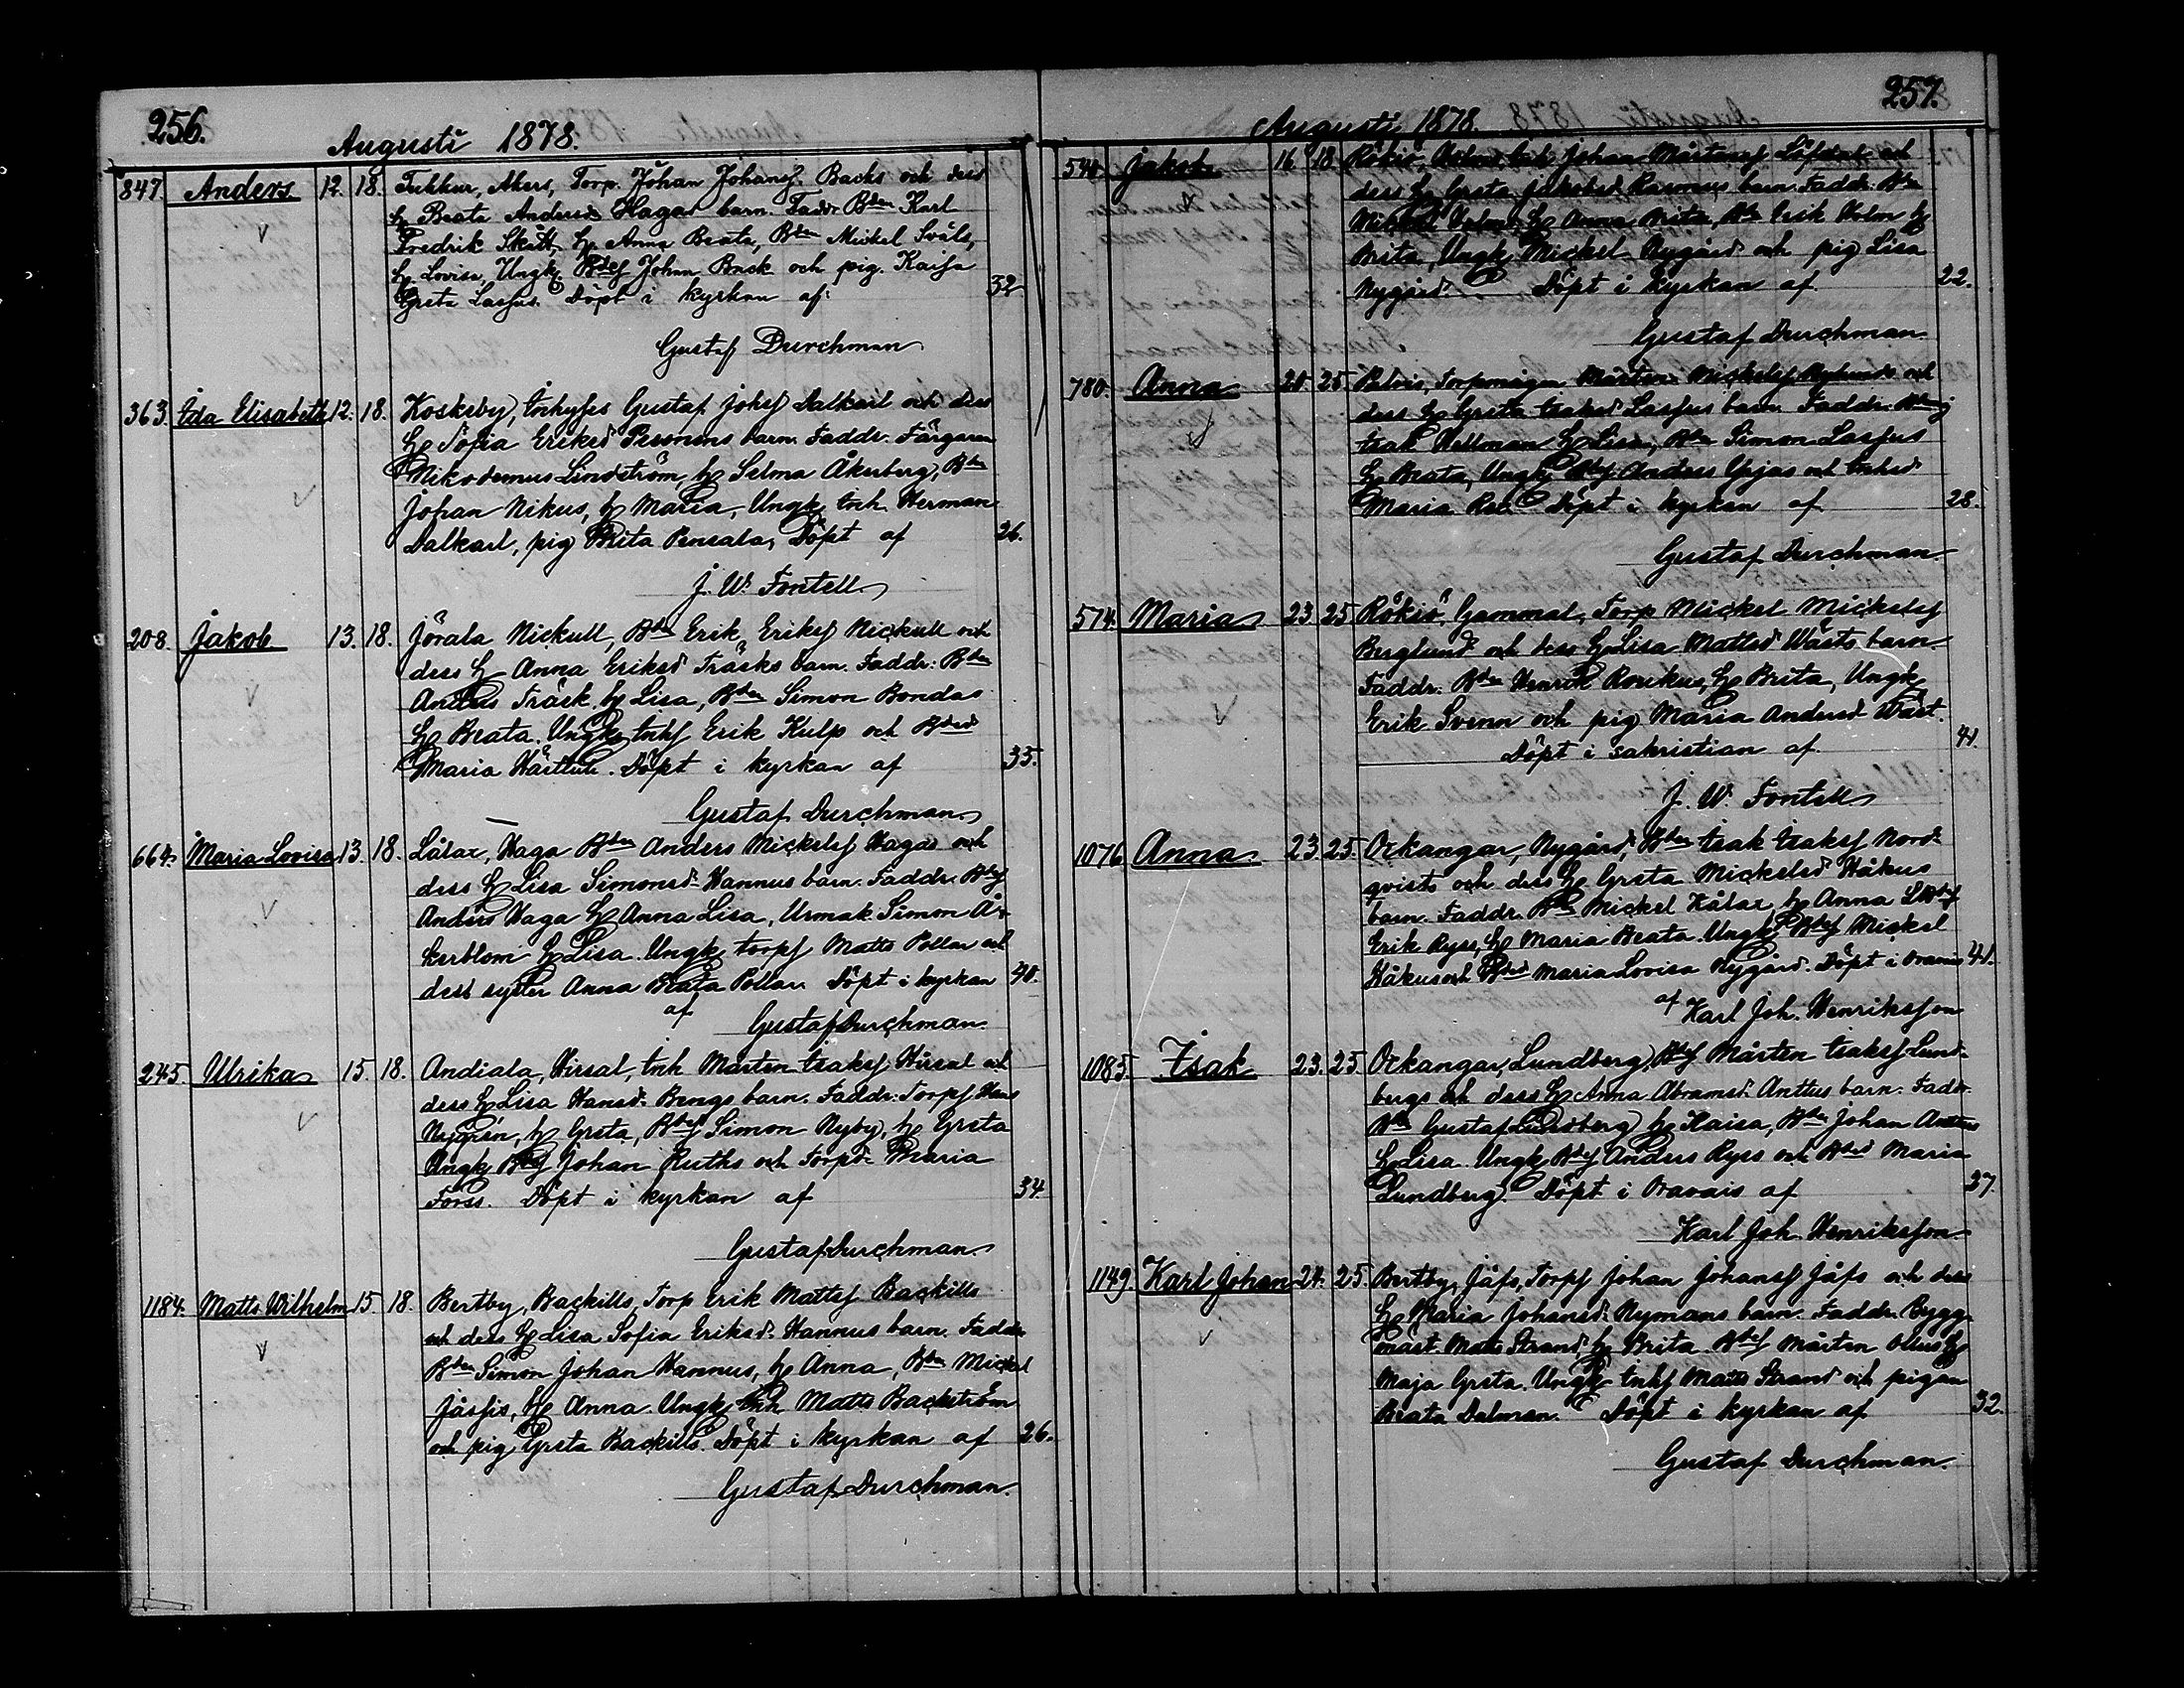 256.
Augusti 1878.
847. Anders 12. 18. Tukkur, Akers, Torp. Johan Johansſ. Backs och dess
hu Beata Andersd. Hagas barn. Faddr. Bden Karl
Fredrik Skått, hu Anna Beata, Bden Mickel Svåls,
hu Lovisa, Ungk. Bdesſ Johan Back och pig. Kaisa
Greta Lassus. Döpt i kyrkan af: 32
Gustaf Durchman
363. Ida Elisabeth 12. 18. Koskeby, Inhyses Gustaf Johsſ Dalkarl och dess
hu Sofia Eriksd Pesonens barn. Faddr. Färgaren
Nikodemus Lindström, hu Selma Åkerberg, Bden
Johan Nikus, hu Maria, Ungk. Inh. Herman
Dalkarl, pig Brita Pensala, Döpt af 26.
J. W. Fontell
208. Jakob 13. 18. Jörala Nickull, Bden Erik Eriksſ Nickull och
dess hu Anna Eriksd Träsks barn. Faddr: Bden
Anders Träsk, hu Lisa, Bden Simon Bondas
hu Beata. Ungk. Inhſ Erik Kulps och Bdesd
Maria Härtull. Döpt i kyrkan af 35.
Gustaf Durchman
664. Maria Lovisa 13. 18. Lålax, Haga Bden Anders Mickelsſ Hagas och
dess hu Lisa Simonsd. Hannus barn. Faddr. Bdesſ
Anders Haga hu Anna Lisa, Urmak. Simon Å-
kerblom hu Lisa. Ungk. torpſ Matts Pollar och
dess syster Anna Beata Pollar. Döpt i kyrkan 40.
af
Gustaf Durchman.
245. Ulrika 15. 18. Andiala, Hirsal, Inh Mårten Isaksſ Hirsal och
dess hu Lisa Hansd. Bengs barn. Faddr. Torpſ Hans
Nygren, hu Greta, Bdesſ Simon Nyby, hu Greta
Ungk. Bdesſ Johan Ruths och Torpd. Maria
Forss. Döpt i kyrkan af 34
Gustaf Durchman
1184. Matts Wilhelm 15 18. Bertby, Backills, Torp Erik Mattsſ Backills
och dess hu Lisa Sofia Eriksd. Hannus barn. Faddr.
Bden Simon Johan Hannus, hu Anna, Bden Mickel
Jåssis, hu Anna. Ungk. Inh Matts Backström
och pig Greta Backills. Döpt i kyrkan af 26.
Gustaf Durchman.
257.
Augusti 1878.
540 Jakob 16 18. Rökiö, Holm, Inh Johan Mårtensſ Löfdal och
dess hu Greta Jakobsd. Rasmus barn. Faddr. Bden
Mickel Holm, hu Anna Brita, Bden Erik Holm hu
Brita, Ungk. Mickel Nygård och pig Lisa
Nygård. Döpt i kyrkan af 22.
Gustaf Durchman.
780. Anna 20 25. Palvis, Torpmågen Mårten Mickelsſ Nylunds och
dess hu Greta Isaksd Lassus barn. Faddr.
Isak Hellman hu Lisa, Bden Simon Lassus
hu Beata, Ungk. Bdsſ Anders Ypjas och Inhsd
Maria Döpt i kyrkan af 28.
Gustaf Durchman
574. Maria 23 25 Rökiö, Gammal, Torp Mickel Mickelsſ
Berglund och dess hu Lisa Mattsd Wästs barn.
Faddr. Bden Henrik Roukus, hu Brita, Ungk
Erik Svenn och pig Maria Andersd Wäst.
Döpt i sakristian af 41.
J. W. Fontell
1076 Anna 23. 25. Oxkangar, Nygård, Bden Isak Isaksſ Nord-
qvists och dess hu Greta Mickelsd Håkus
barn. Faddr. Bden Mickel Kålax, hu Anna L. Bdesſ
Erik Ryss, hu Maria Beata. Ungk. Bdesſ Mickel
Håkus och Bdesd Maria Lovisa Nygård. Döpt i Oravais 41.
af Karl Joh. Henriksſon
1085. Isak 23. 25. Oxkangar, Lundberg, Bdesſ Mårten Isaksſ Lund-
bergs och dess hu Anna Abramsd. Anttus barn. Faddr.
Bden Gustaf Lundberg, hu Kaisa, Bden Johan Anttus
hu Lisa. Ungk. Bdesſ Anders Ryss och Bdesd Maria
Lundberg. Döpt i Oravais af 37.
Karl Joh. Henriksſon
1149. Karl Johan 24. 25. Bertby, Jåfs, Torpſ Johan Johansſ Jåfs och dess
hu Maria Johansd. Nymans barn. Faddr. Bygg-
mäst. Matts Strand, hu Brita. Bdesſ Mårten Ollus hu
Maja Greta. Ungk. Inhſ Matts Strand och pigan
Beata Dalman. Döpt i kyrkan af 32.
Gustaf Durchman.